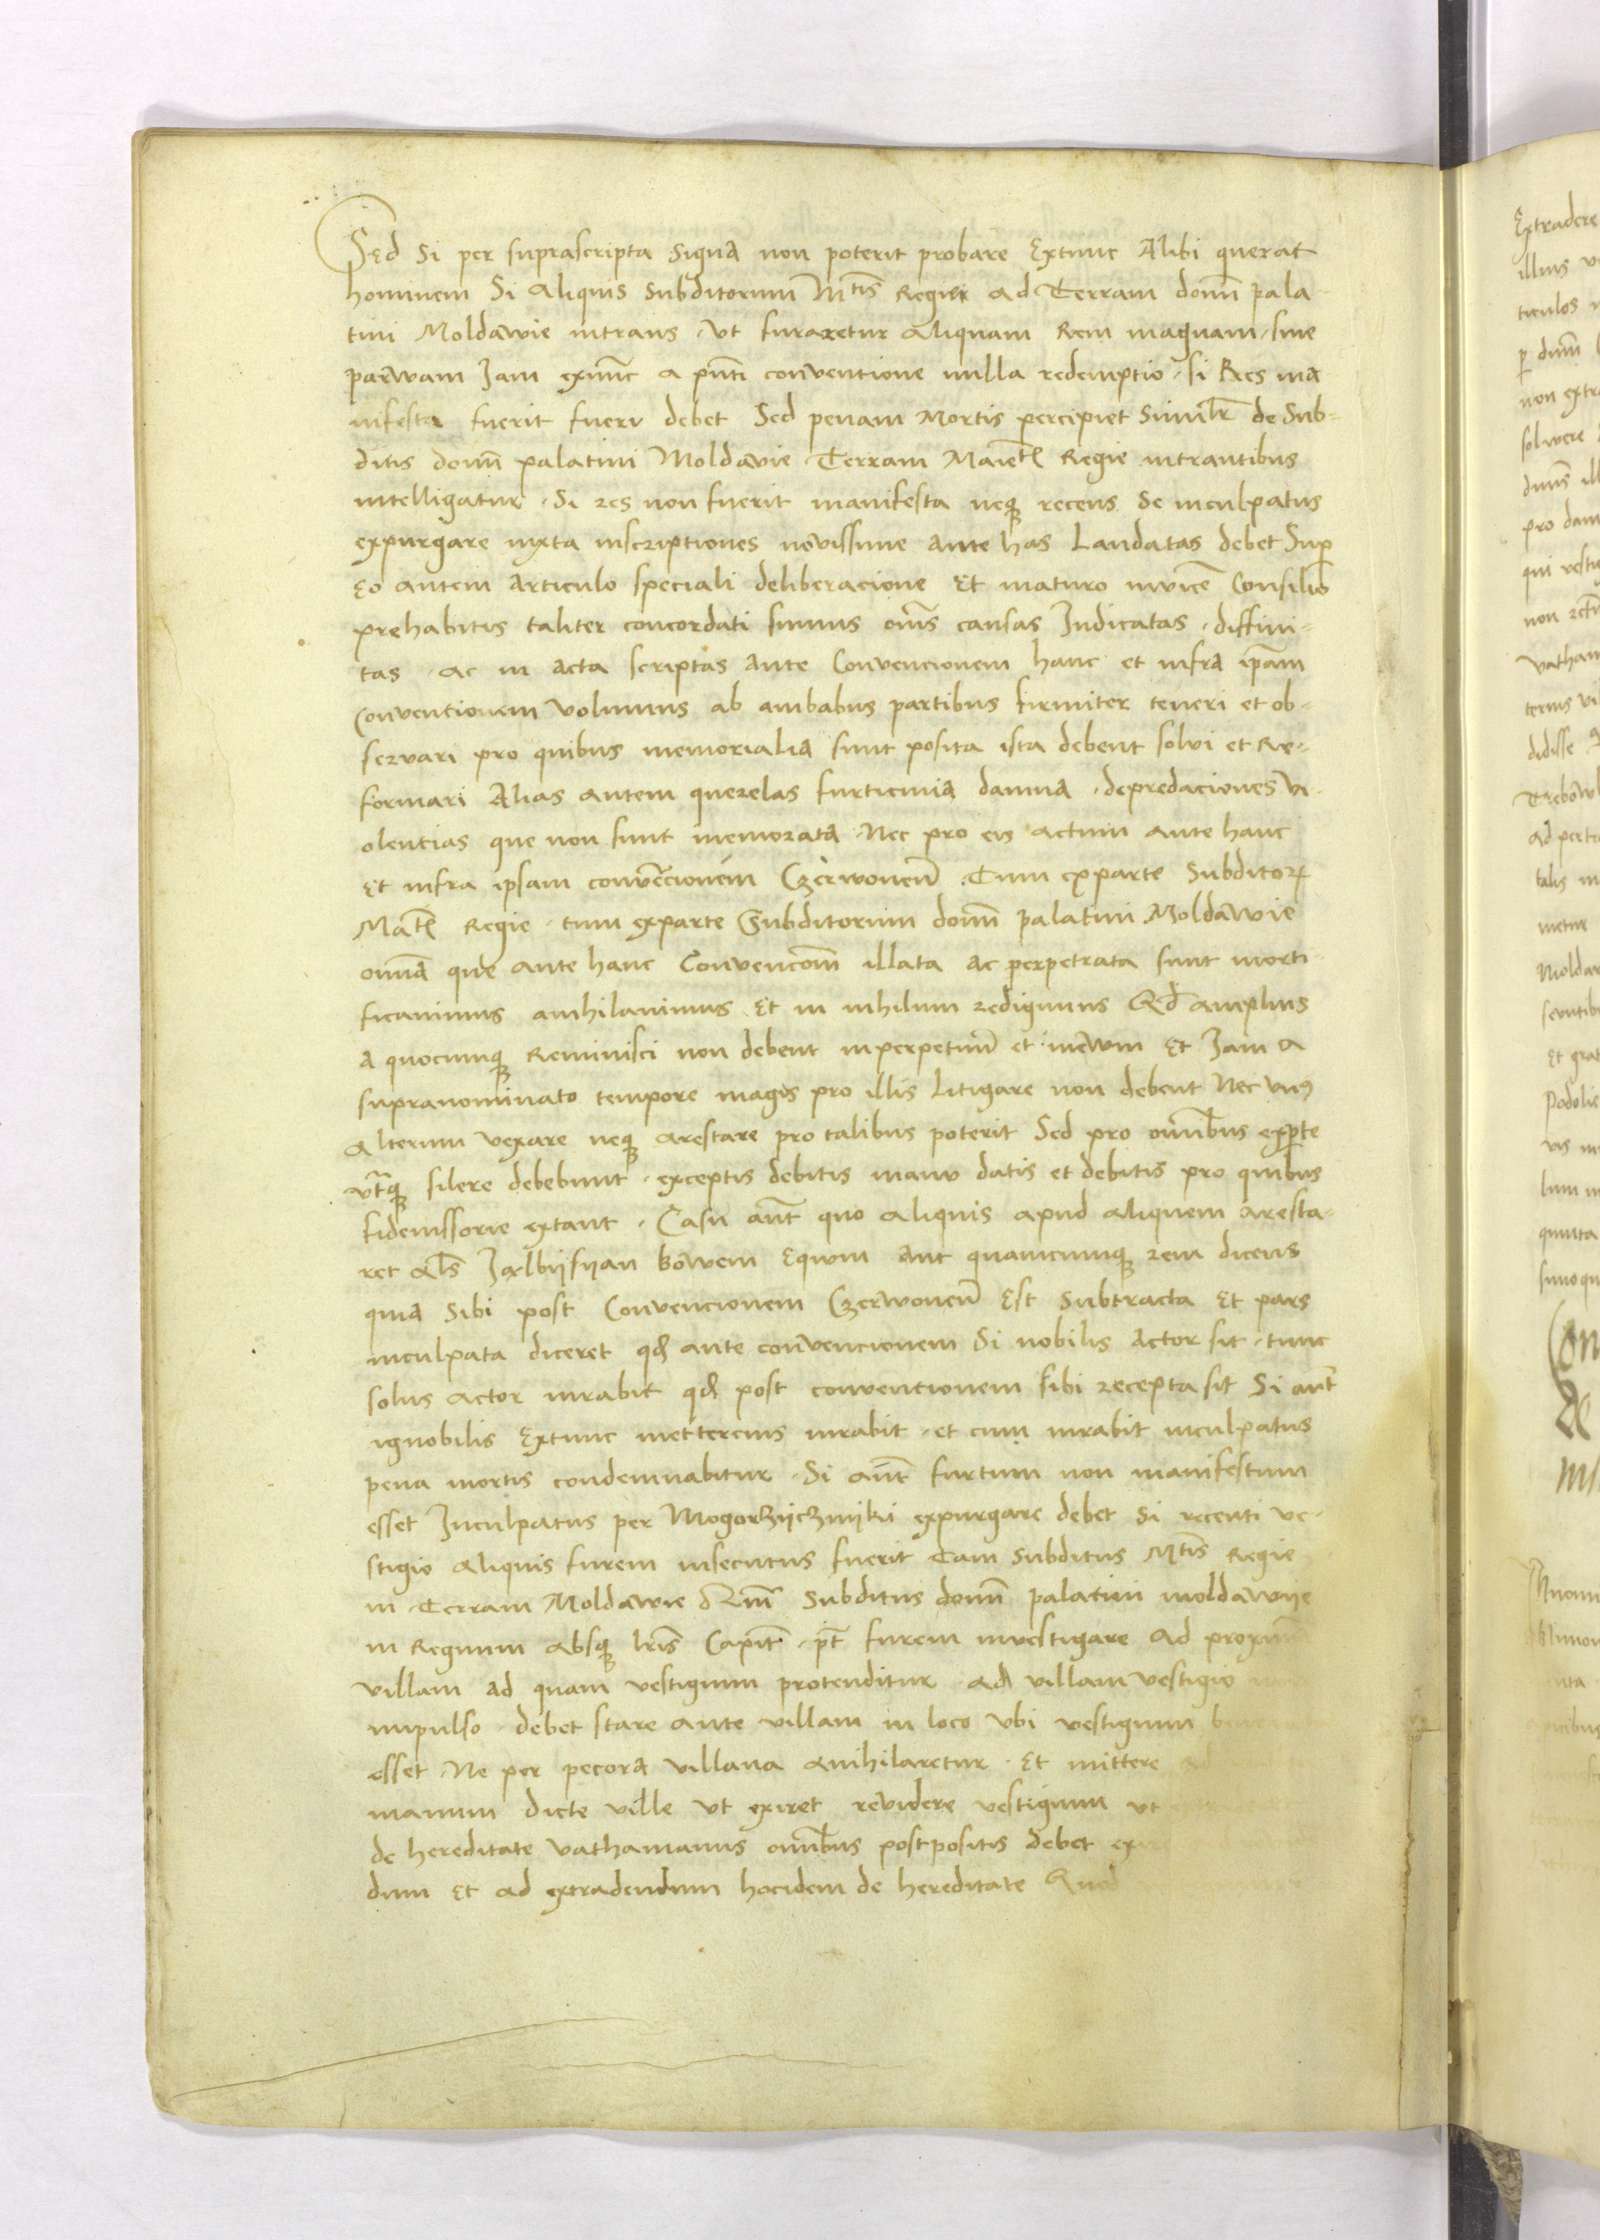 Sed Si per suprascripta signa non poterit probare Extunc Alibi querat
hominem Si Aliquis Subditorum Mtis Regie Ad Terram domi pala
tini Moldawie intrans ut furaretur Aliquam Rem magnam sive
parwam Iam exnunc a pnti conventione nulla redemptio si Res ma
nifesta fuerit fieri debet Sed penam Mortis percipiet Similr de Sub-
ditis domi palatini Moldavie Terram Maiest Regie intrantibus
intelligatur Si res non fuerit manifesta neq recens Se inculpatus
expurgare iuxta inscriptiones novissime ante has Laudatas debet Sup
Eo autem Articulo speciali deliberacione Et maturo invice Consilio
prehabitis taliter concordati sumus oms causas Iudicatas diffini-
tas Ac in acta scriptas ante Convencionem hanc et infra ipam
Conventionem Volumus ab ambabus partibus firmiter teneri et ob-
servari pro quibus memorialia sunt posita ista debent solvi et Re-
formari Alias autem querelas furticinia damna depredaciones vi-
olentias que non sunt memorata Nec pro eis actum ante hanc
Et infra ipsam convencionem Czerwonen Tum exparte Subditor
Mat Regie tum exparte Subditorum domi palatini Moldawie
omia que ante hanc Convencom illata ac perpetrata sunt morti-
ficavimus anihilavimus Et in nihilum redigimus Qd amplius
a quocunq Reminisci non debent inperpetuu et inewm Et Iam a
supranominato tempore magis pro illis Litigare non debent Nec unus
Alterum vexare neq arestare pro talibus poterit Sed pro omibus exprte
utraq silere debebunt exceptis debitis manu datis et debitis pro quibus
fideiussorie extant Casu aut quo Aliquis apud Aliquem aresta-
ret als Izalbyfyan bowem Equm aut quamcumq rem dicens
quia sibi post Convencionem Czerwonen Est Subtracta Et pars
inculpata diceret qd ante convencionem Si nobilis Actor sit tunc
solus Actor iurabit qd post conventionem sibi recepta sit Si aut
ignobilis Extunc mettercius iurabit et cum iurabit inculpatus
pena mortis condemnabitur Si aut furtum non manifestum
esset Inculpatus per Mogorzyczniki expurgare debet Si recenti ve-
stigio Aliquis furem insecutus fuerit Tam Subditus Mtis Regie
in Terram Moldawie Qm Subditus domi palatini moldawije
in Regnum Absq lris Capit pt furem investigare Ad proximam
villam ad quam vestigium protenditur Ad villam vestigio
impulso debet stare ante villam in loco ubi vestigium
esset Ne per pecora villana anihilaretur Et mittere ad
manum dicte ville ut exiret revidere vestigium ut
de hereditate Vathamanus omibus postpositis debet
dum Et ad extradendum hocidem de hereditate Quod